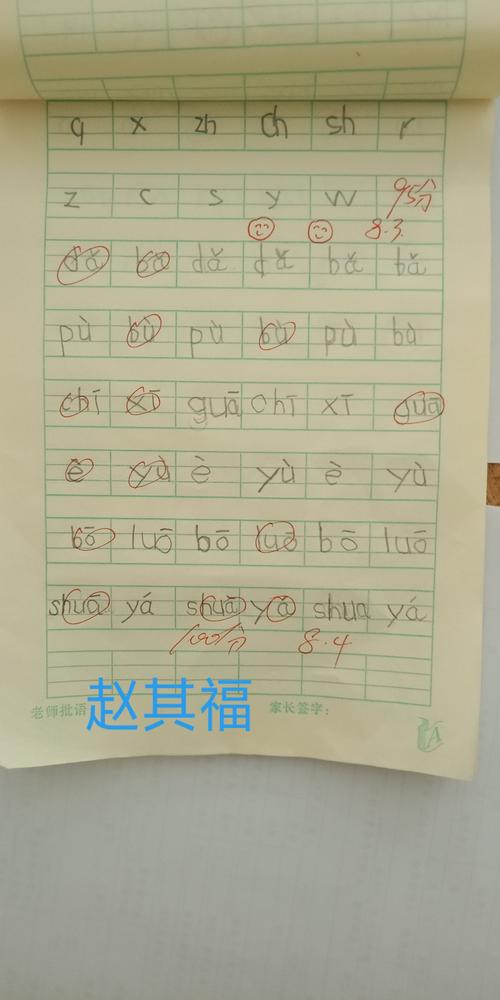 q x zh ch sh r
z c s y w 95分
8.3
dǎ bǎ dǎ dǎ bǎ bǎ
pù bù pù bù pù bù
chī xī guā chī xī guā
è yù è yù è yù
bō luō bō luō bō luō
shuā yá shuā yá shua yá
100分 8.4
老师批语 赵其福 家长签字：